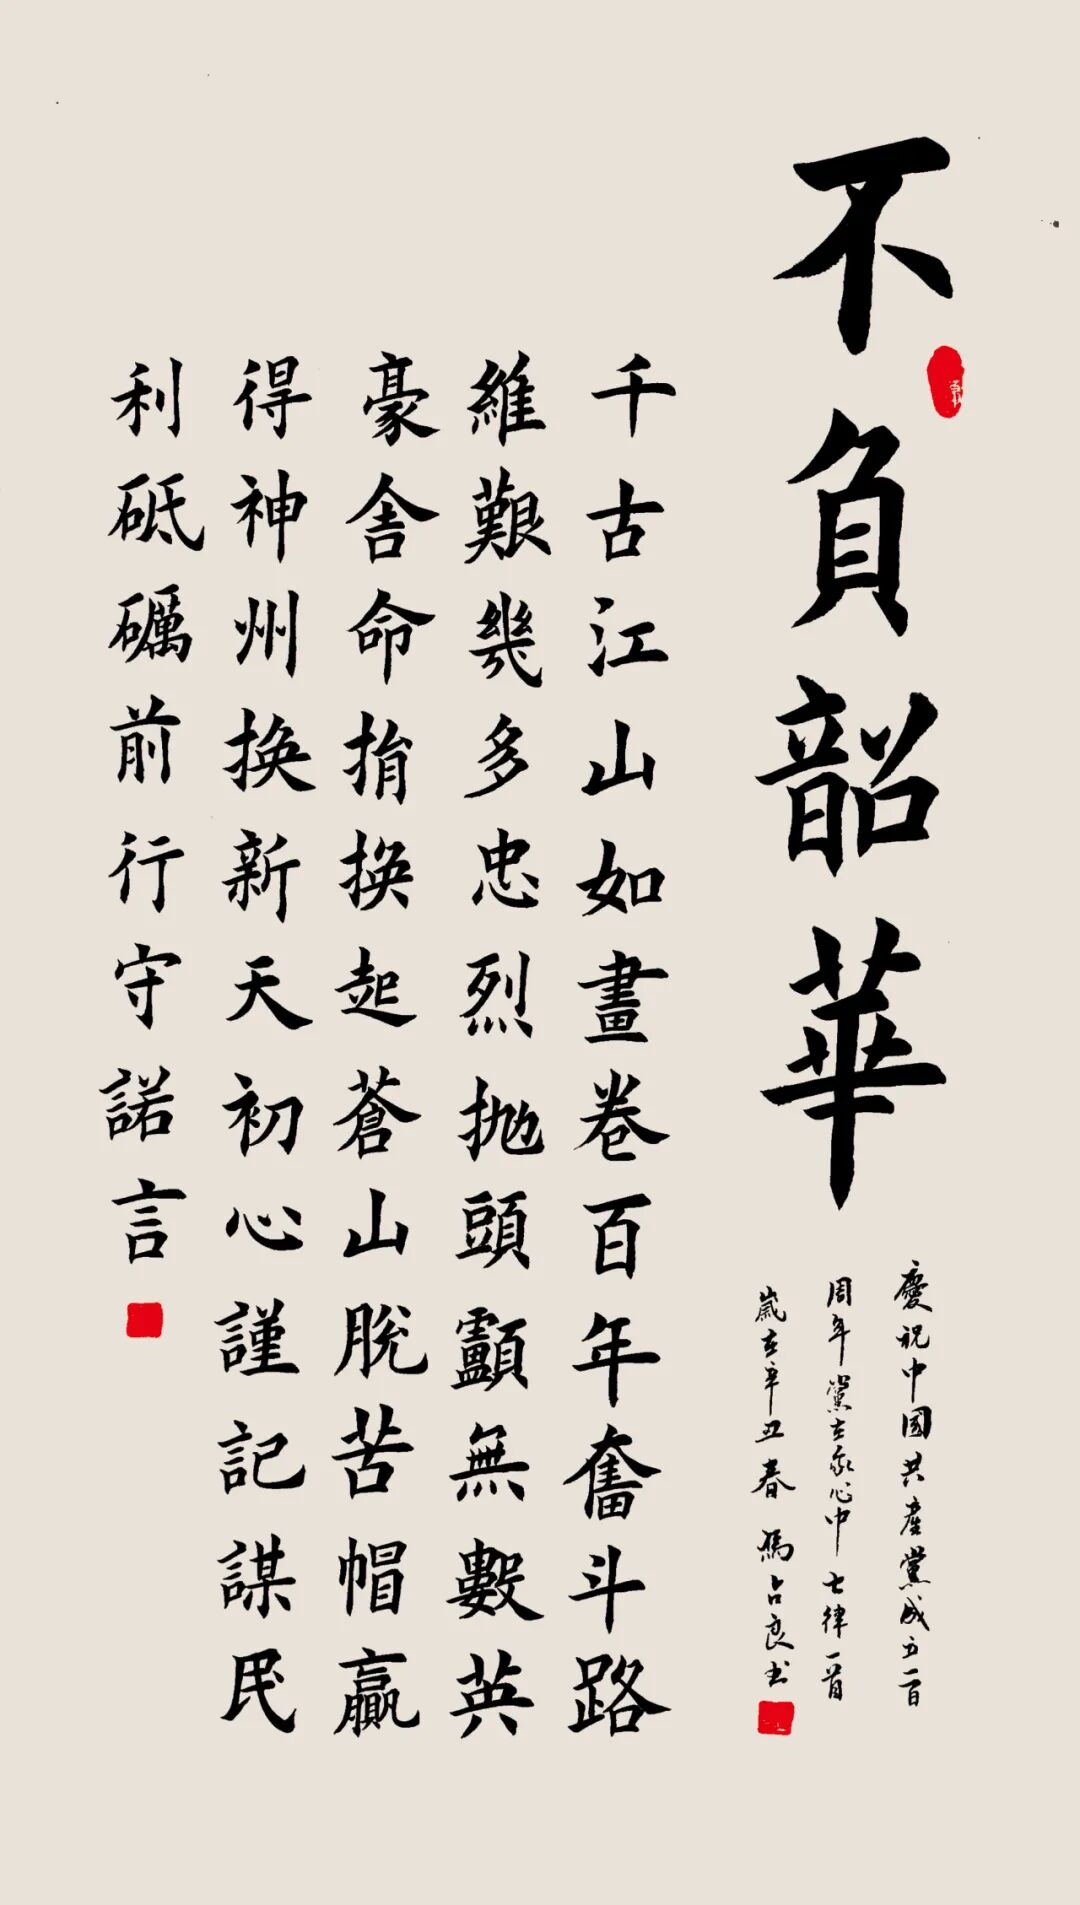 不負韶華
慶祝中國共產黨成立一百
周年黨在我心中七律一首
歲在辛丑春馮占良书
千古江山如畫卷百年奮斗路
維艱幾多忠烈抛頭顱無數英
豪舍命捐換起蒼山脫苦帽贏
得神州換新天初心謹記謀民
利砥礪前行守諾言